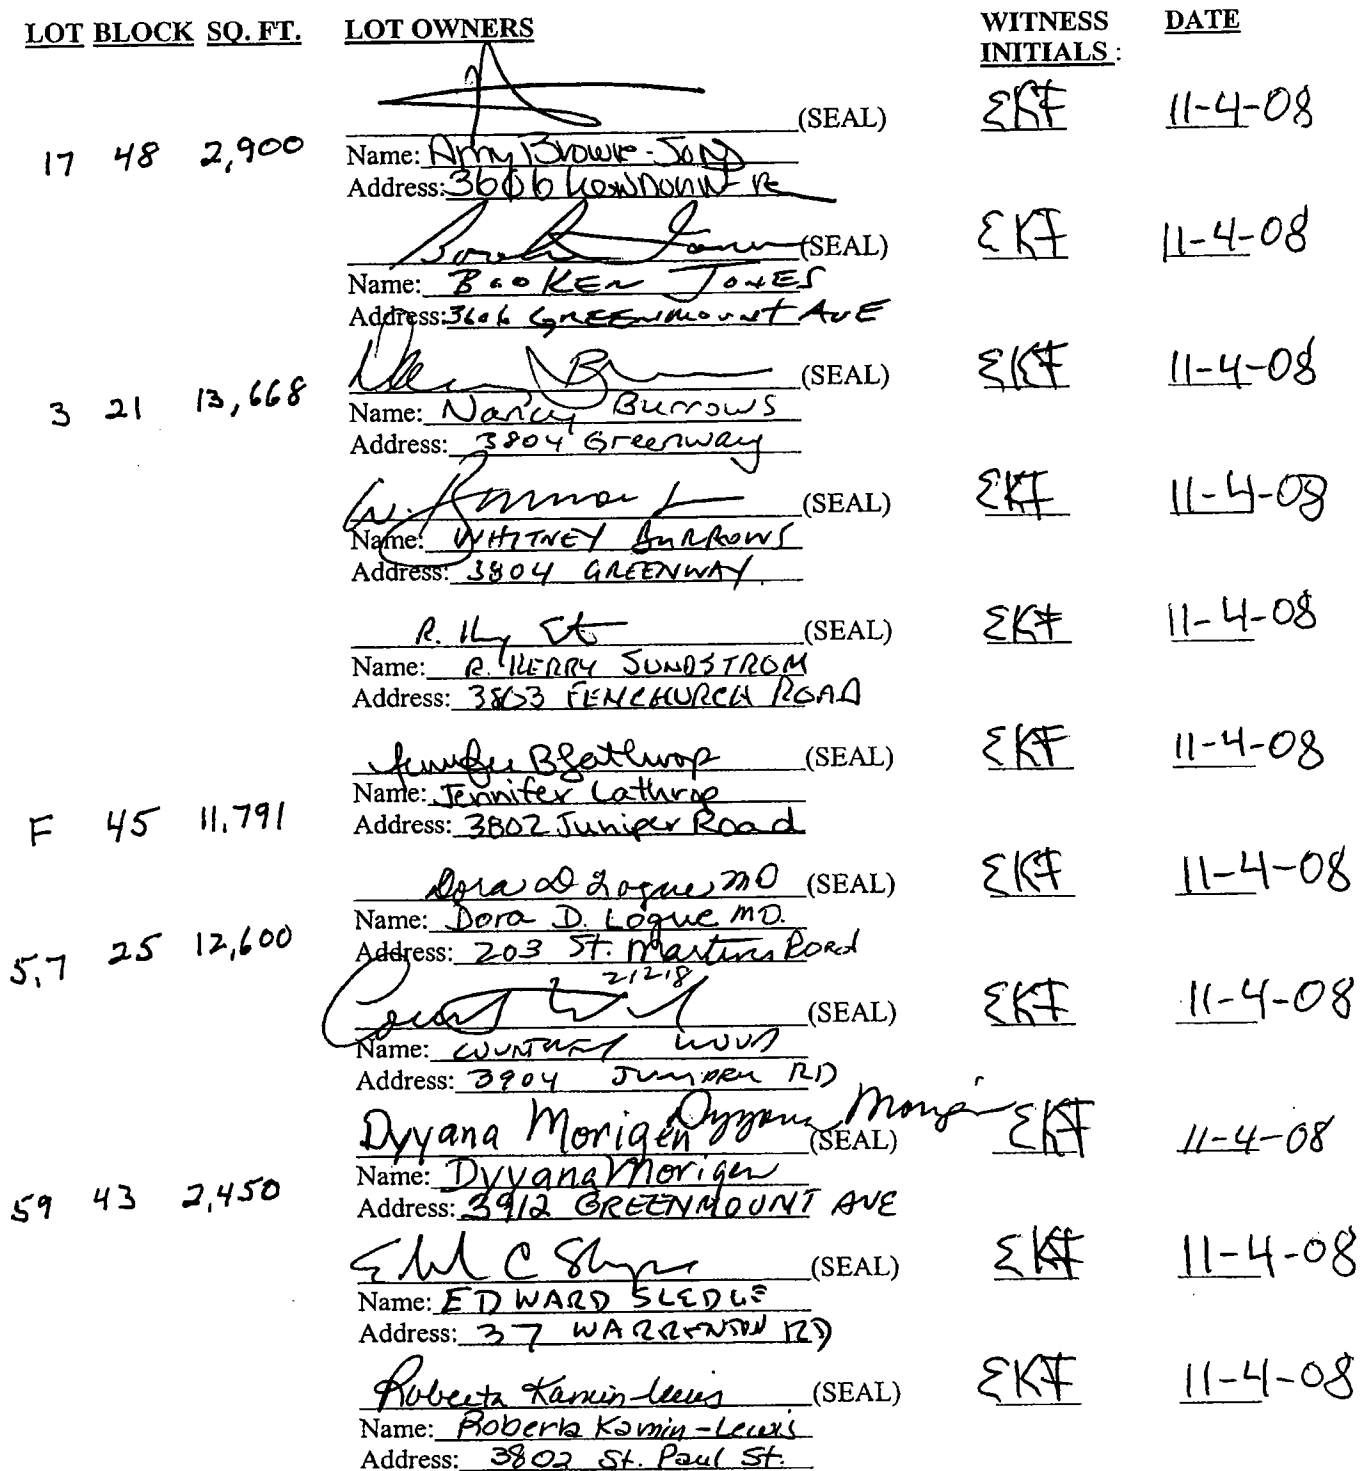 LOT BLOCK SQ. FT. LOT OWNERS WITNESS INITIALS : DATE
(SEAL) EKF 11-4-08
17 48 2,900 Name: Amy Browne-Jones
Address: 3606
(SEAL) EKF 11-4-08
Name: BOOKER JONES
Address: 3606 GREENMOUNT AVE
(SEAL) EKF 11-4-08
3 21 13,668 Name: Nancy Burrows
Address: 3804 Greenway
(SEAL) EKF 11-4-08
Name: WHITNEY BURROWS
Address: 3804 GREENWAY
(SEAL) EKF 11-4-08
Name: R. KERRY SUNDSTROM
Address: FENCHURCH ROAD
Jennifer B Lathrop (SEAL) EKF 11-4-08
Name: Jennifer Lathrop
F 45 11,791 Address: 3802 Juniper Road
Dora D Logue MD (SEAL) EKF 11-4-08
Name: Dora D. Logue MD.
5,7 25 12,600 Address: 203 St. Martins Road
21218
(SEAL) EKF 11-4-08
Name: COURTNEY WOOD
Address: 3904 JUNIPER RD
Dyyana Morigen Dyyana Morigen (SEAL) EKF 11-4-08
Name: Dyyana Morigen
59 43 2,450 Address: 3912 GREENMOUNT AVE
(SEAL) EKF 11-4-08
Name: EDWARD SLEDGE
Address: 37 WARRENTON RD
Roberta Kamin-Lewis (SEAL) EKF 11-4-08
Name: Roberta Kamin-Lewis
Address: 3802 St. Paul St.